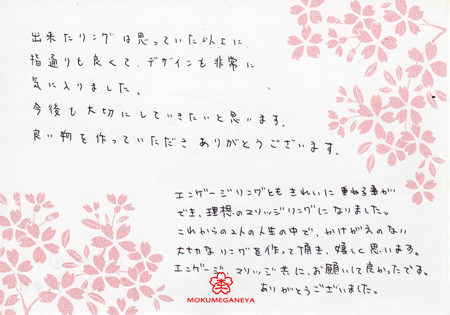 出来たリングは思っていた以上に、
指通りも良くて、デザインも非常に
気に入りました。
今後も大切にしていきたいと思います。
良い物を作っていただきありがとうございます。
エンゲージリングともきれいに重ねる事が
でき、理想のマリッジリングになりました。
これからの2人の人生の中で、かけがえのない
大切なリングを作って頂き、嬉しく思います。
エンゲージ、マリッジ共に、お願いして良かったです。
ありがとうございました。
MOKUMEGANEYA